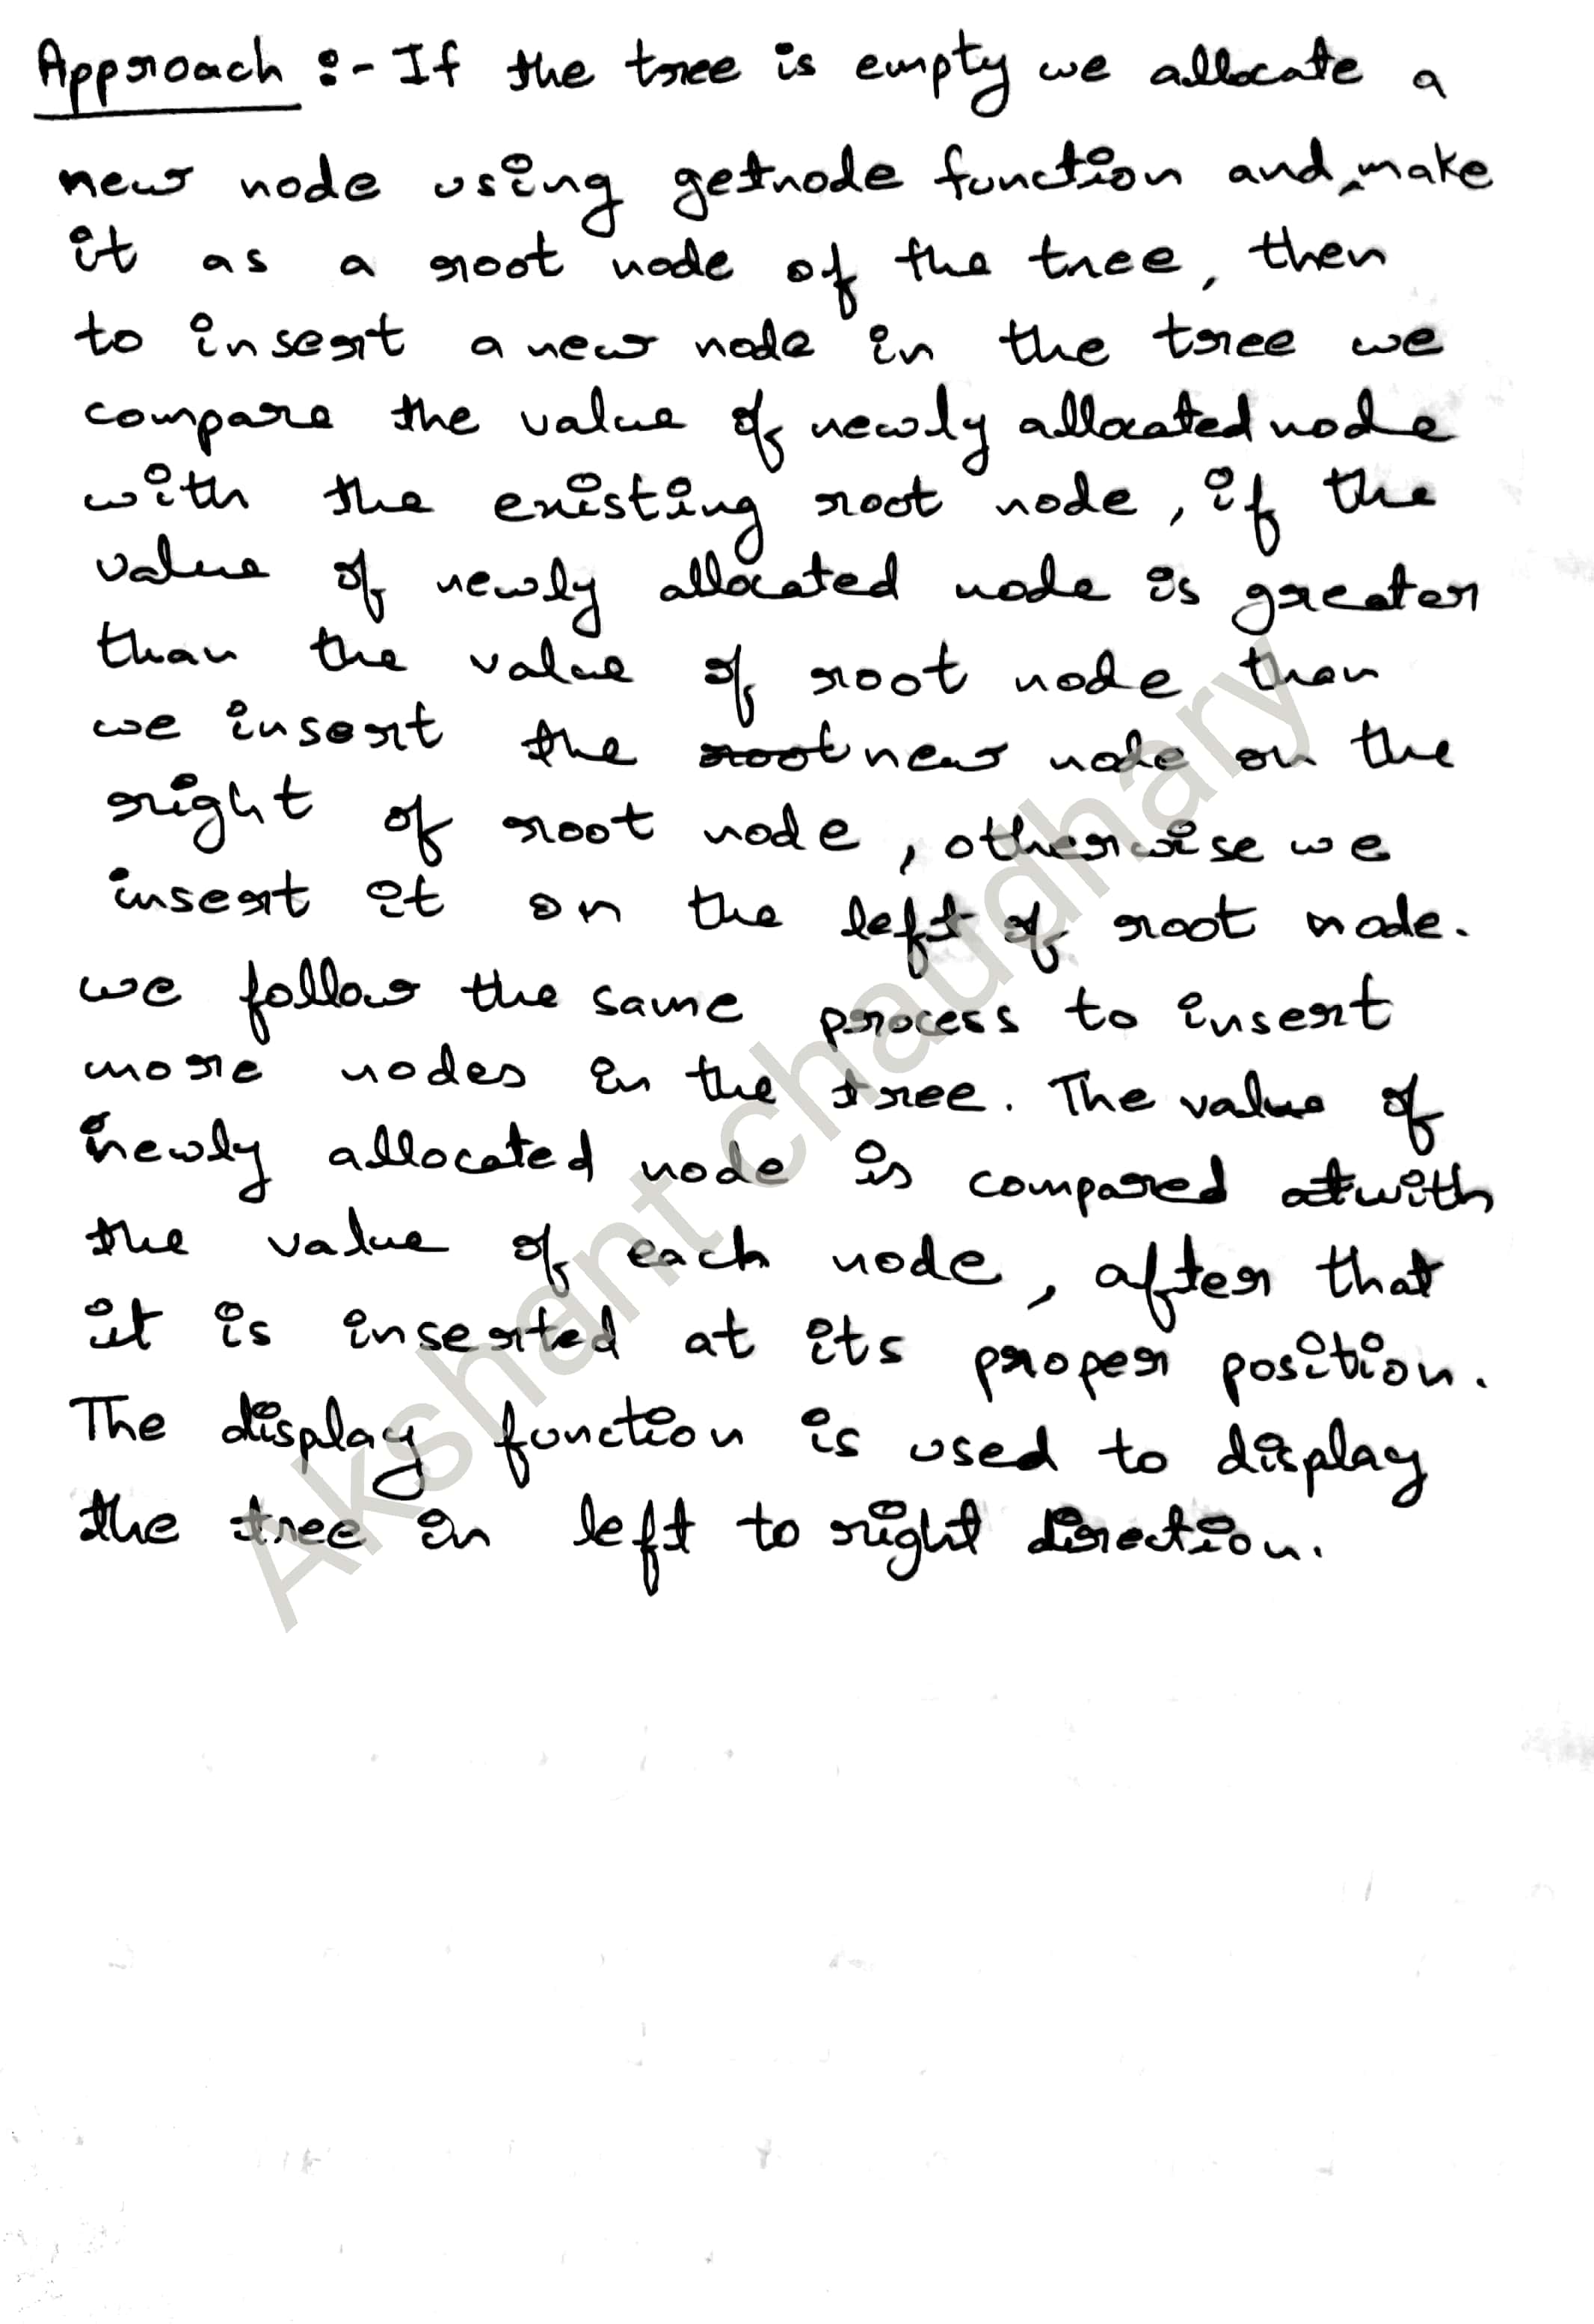 Approach :- If the tree is empty we allocate a
new node using getnode function and make
it as a root node of the tree, then
to insert a new node in the tree we
compare the value of newly allocated node
with the existing root node, if the
value of newly allocated node is greater
than the value of root node then
we insert the root new node on the
right of root node, otherwise we
insert it on the left of root node.
we follow the same process to insert
more nodes in the tree. The value of
newly allocated node is compared at with
the value of each node, after that
it is inserted at its proper position.
The display function is used to display
the tree in left to right direction.
Akshant chaudhary